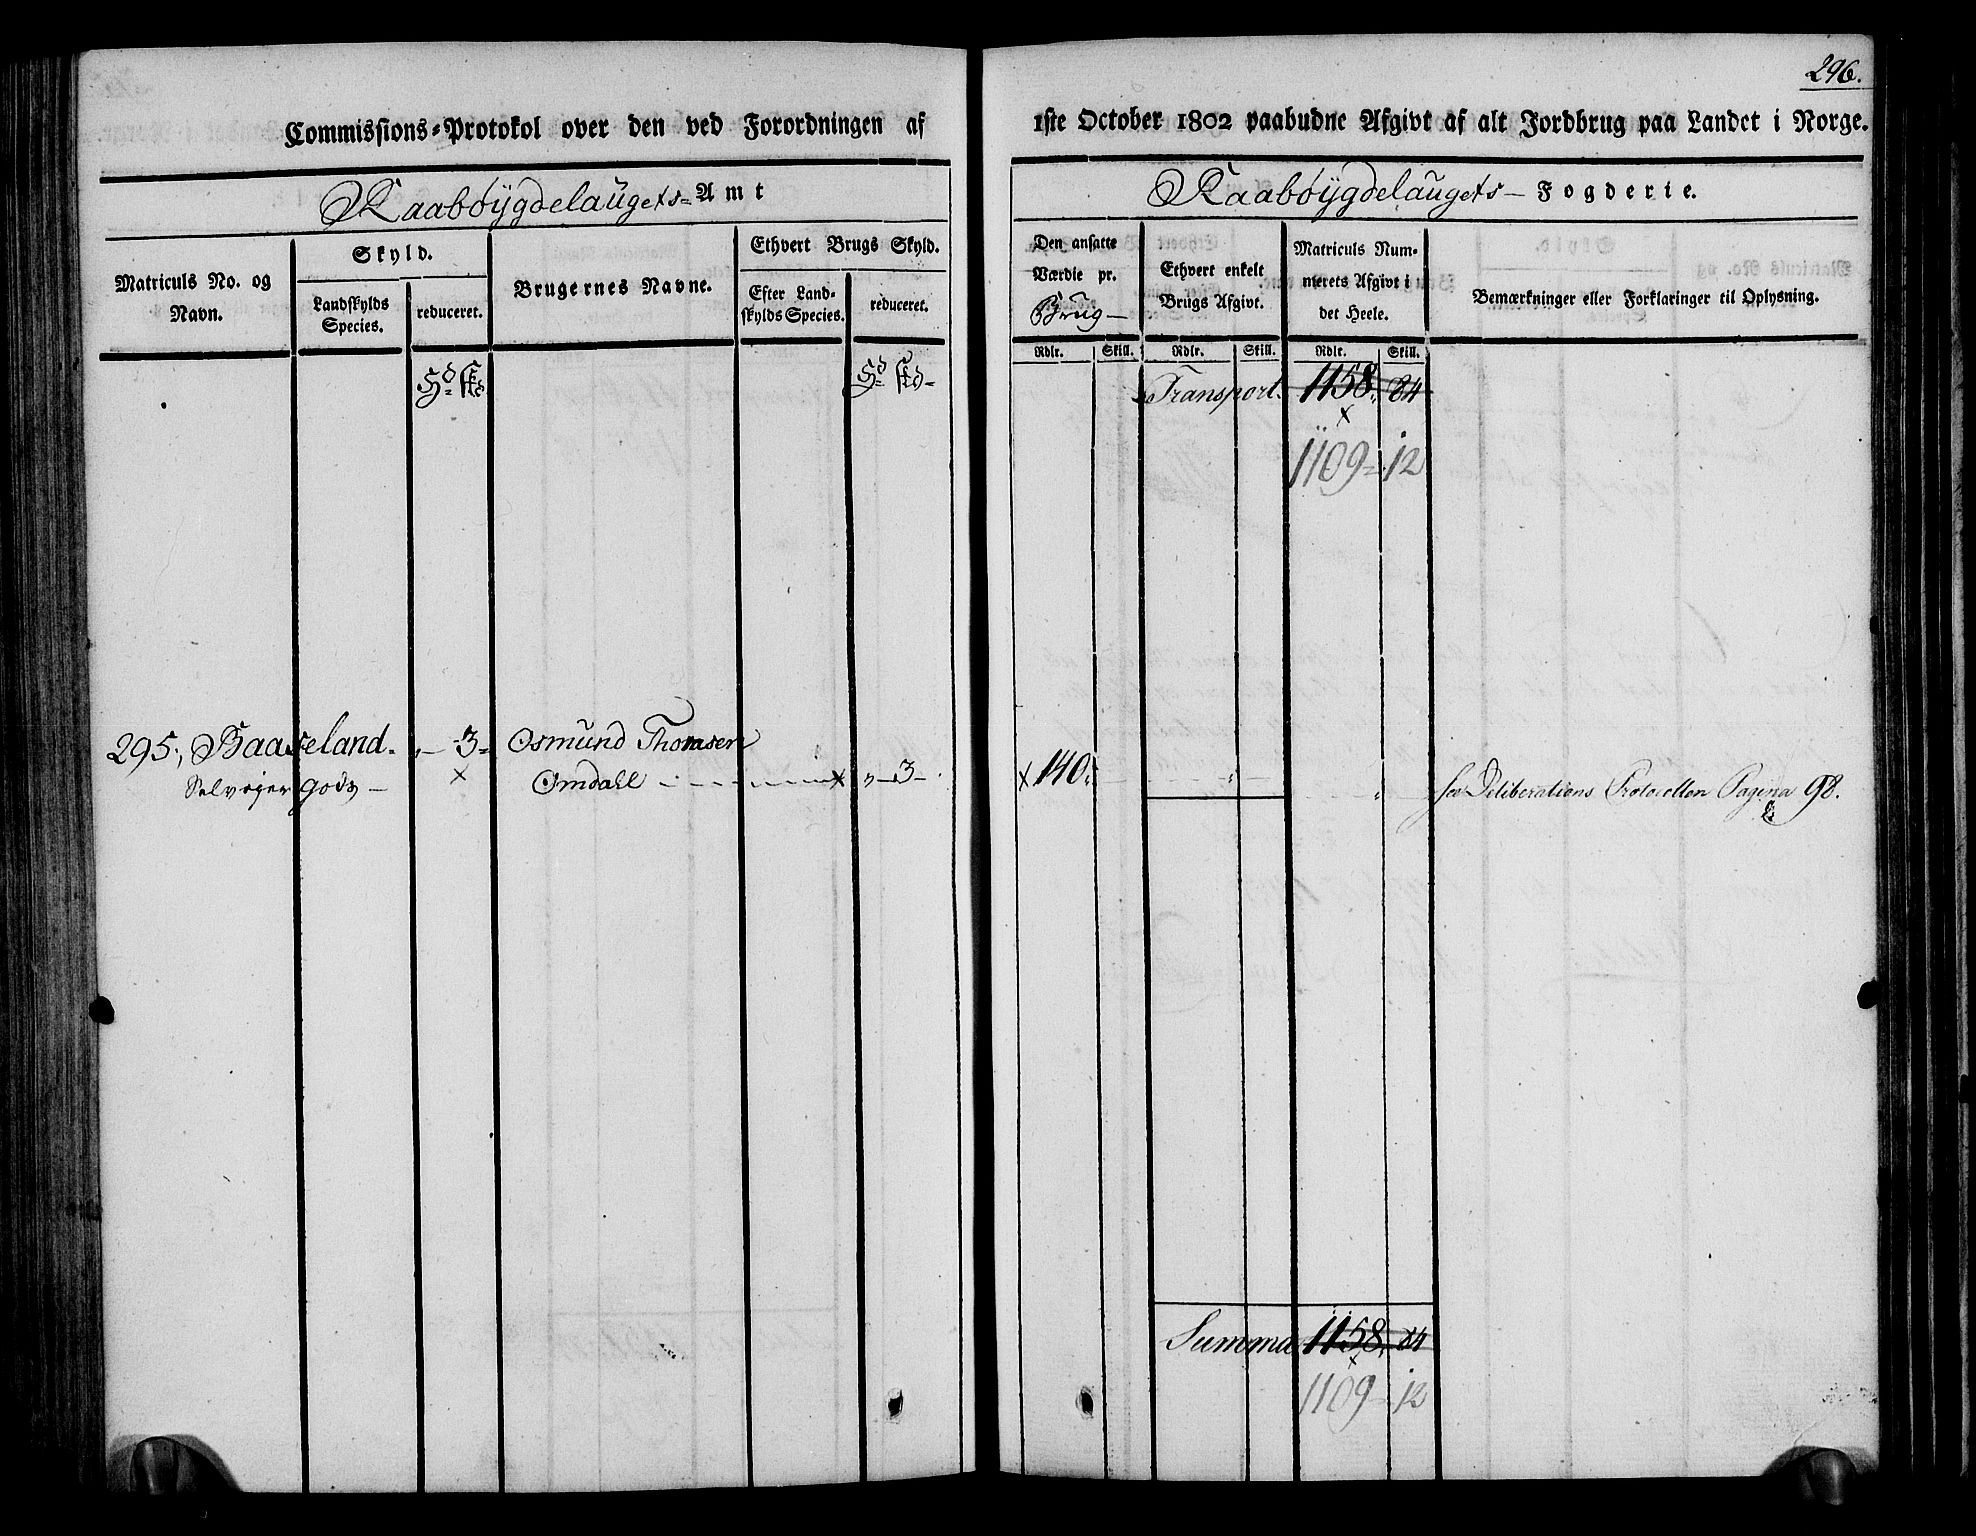 296.
Commissions-Protokol over den ved Forordningen af 1ste October 1802 paabudne Afgivt af alt Jordbrug paa Landet i Norge.
Raabøÿgdelaugets- Amt
Raabøÿgdelaugets- Fogderie.
Matriculs No. og Navn.
Skyld.
Landskylds Species.
reduceret.
Brugernes Navne.
Ethvert Brugs Skyld.
Efter Landskylds Species.
reduceret.
Den ansatte Værdie pr. Brug-
Ethvert enkelt Brugs Afgivt.
Matriculs Nummerets Afgivt i det Heele.
Bemærkninger eller Forklaringer til Oplysning.
Rdlr. Skill. Rdlr. Skill. Rdlr. Skill.
Hd skd Hd skd-
Transport. 1158. 84
x
1109= 12
295; Baaseland. „ - 3= Osmund Thomsen
Selvejer gods - x Omdahl - - - - x „ - 3 - x 140. „ - „ see Deliberations Protocollen Pagina 98.
Summa 1158. 84
x
1109 - 12